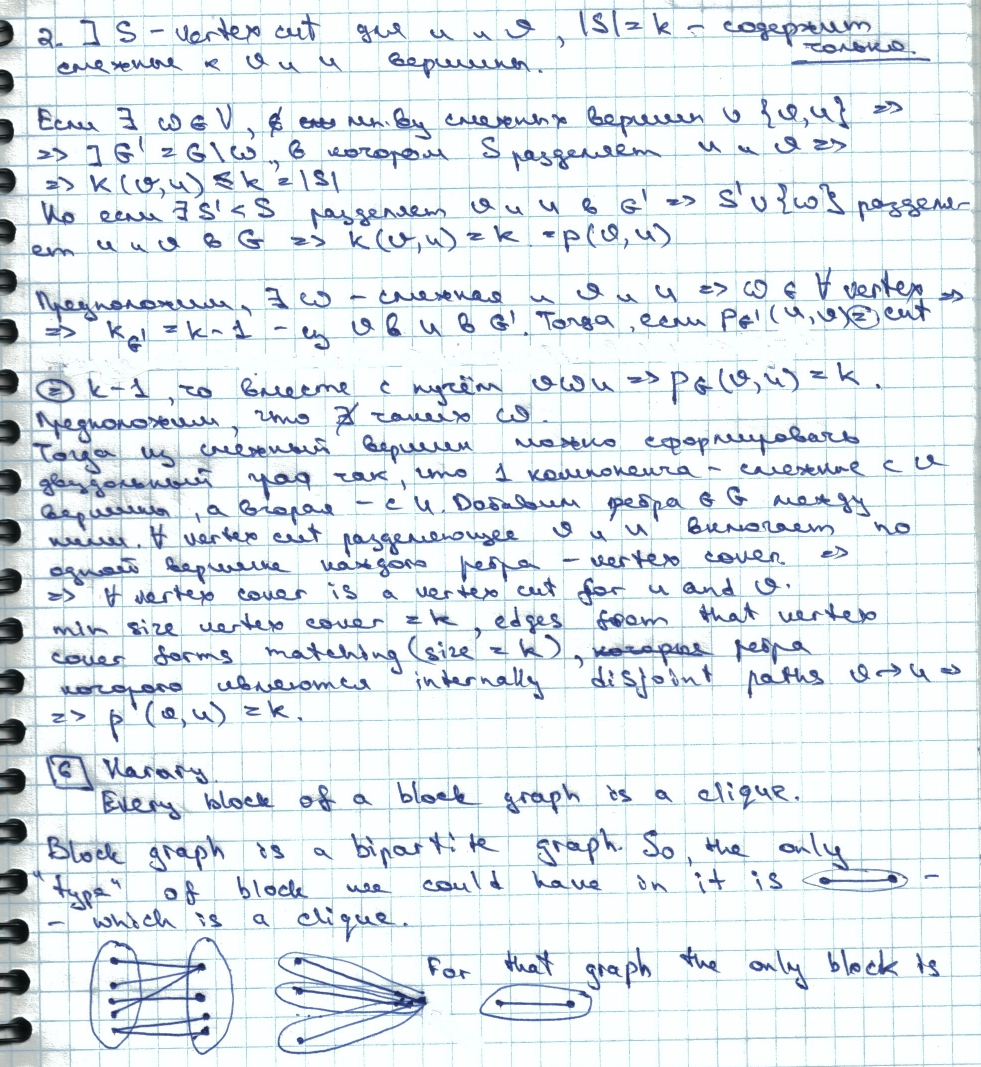 2. ] S - vertex cut для u и v, |S| = k - содержит только
смежные к v и u вершины.
Если ∃ ω ∈ V, ∉ мн.ву смежных вершин ∪ {v,u} =>
=> ] G' = G \ ω, в котором S разделяет u и v =>
=> k(v,u) ≤ k = |S|
Но если ∃ S' < S разделяет v и u в G' => S' ∪ {ω} разделя-
ет u и v в G => k(v,u) = k = p(v,u)
Предположим, ∃ ω - смежная и v и u => ω ∈ ∀ vertex cut =>
=> k_G' = k-1 - из v в u в G'. Тогда, если p_G'(u,v) =
= k-1, то вместе с путём vωu => p_G(v,u) = k.
Предположим, что ∄ таких ω.
Тогда из смежный вершин можно сформировать
двудольный граф так, что 1 компонента - смежные с v
вершины, а вторая - с u. Добавим ребра ∈ G между
ними. ∀ vertex cut разделяющее v и u включает по
одной вершине каждого ребра - vertex cover. =>
=> ∀ vertex cover is a vertex cut for u and v.
min size vertex cover = k, edges from that vertex
cover forms matching (size = k), ребра
которого являются internally disjoint paths v → u =>
=> p'(v,u) = k.
6 Harary.
Every block of a block graph is a clique.
Block graph is a bipartite graph. So, the only
"type" of block we could have in it is -
- which is a clique.
For that graph the only block is